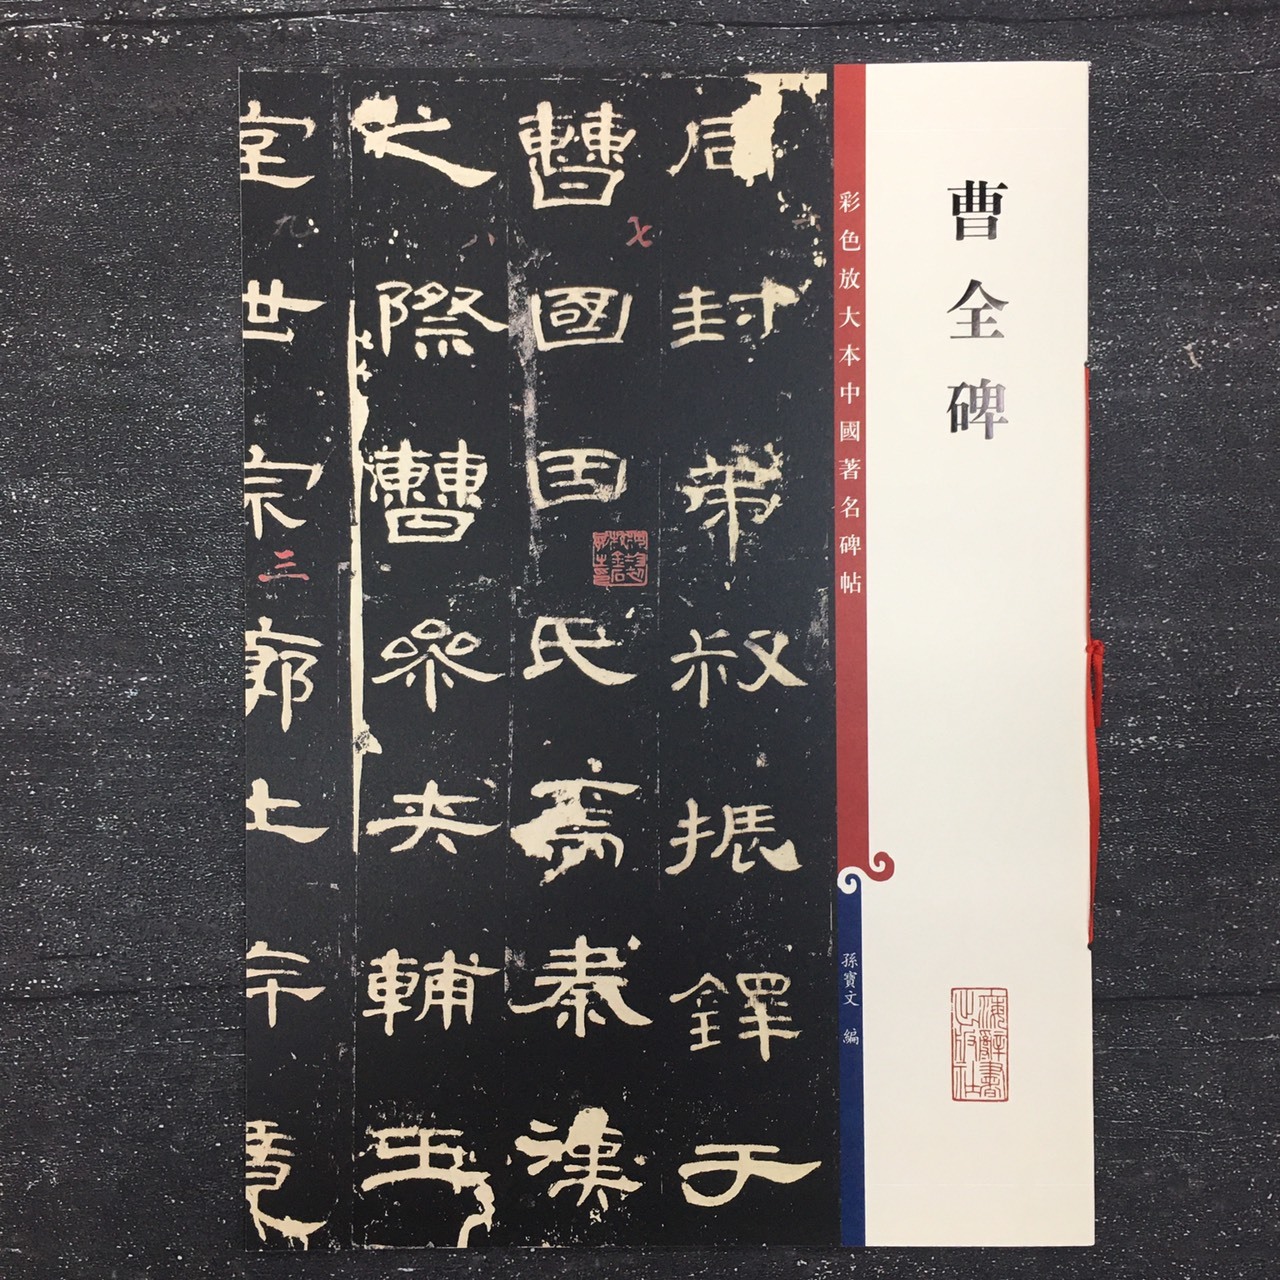 曹全碑
彩色放大本中國著名碑帖
孫寶文 編
海辭書
出版社
后封弟叔振鐸于
曹國因氏焉秦漢
之際曹參夾輔王
室世宗廓土斥竟
七
八
九
三